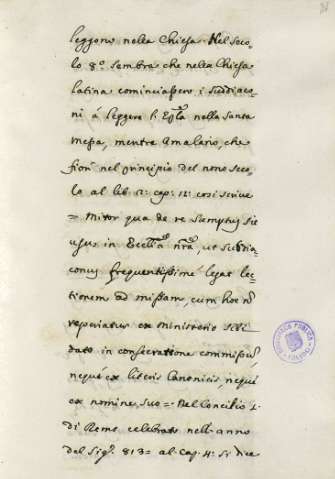 leggono nella Chiesa. Nel Seco-
lo 8º sembra che nella Chiesa
Latina cominciassero i Suddiaco-
ni á leggere l' Epla nella Santa
Messa, mentre Amalario, che
fiorì nel principio del nono Seco-
lo al lib. 2º cap. 11º cosí scrive
= Miror qua de re sumptus sit
usus in Ecclia nra, ut subdia-
conus frequentissimè legat lec-
tionem ad missam, cum hoc nō
reperiatur ex ministerio sibi
dato in consecratione commissū,
neque ex literis Canonicis, neque
ex nomine suo = Nel Concilio 2.
di Rems celebrato nell' anno
del Sig.re 813= al Cap. 4º si dice